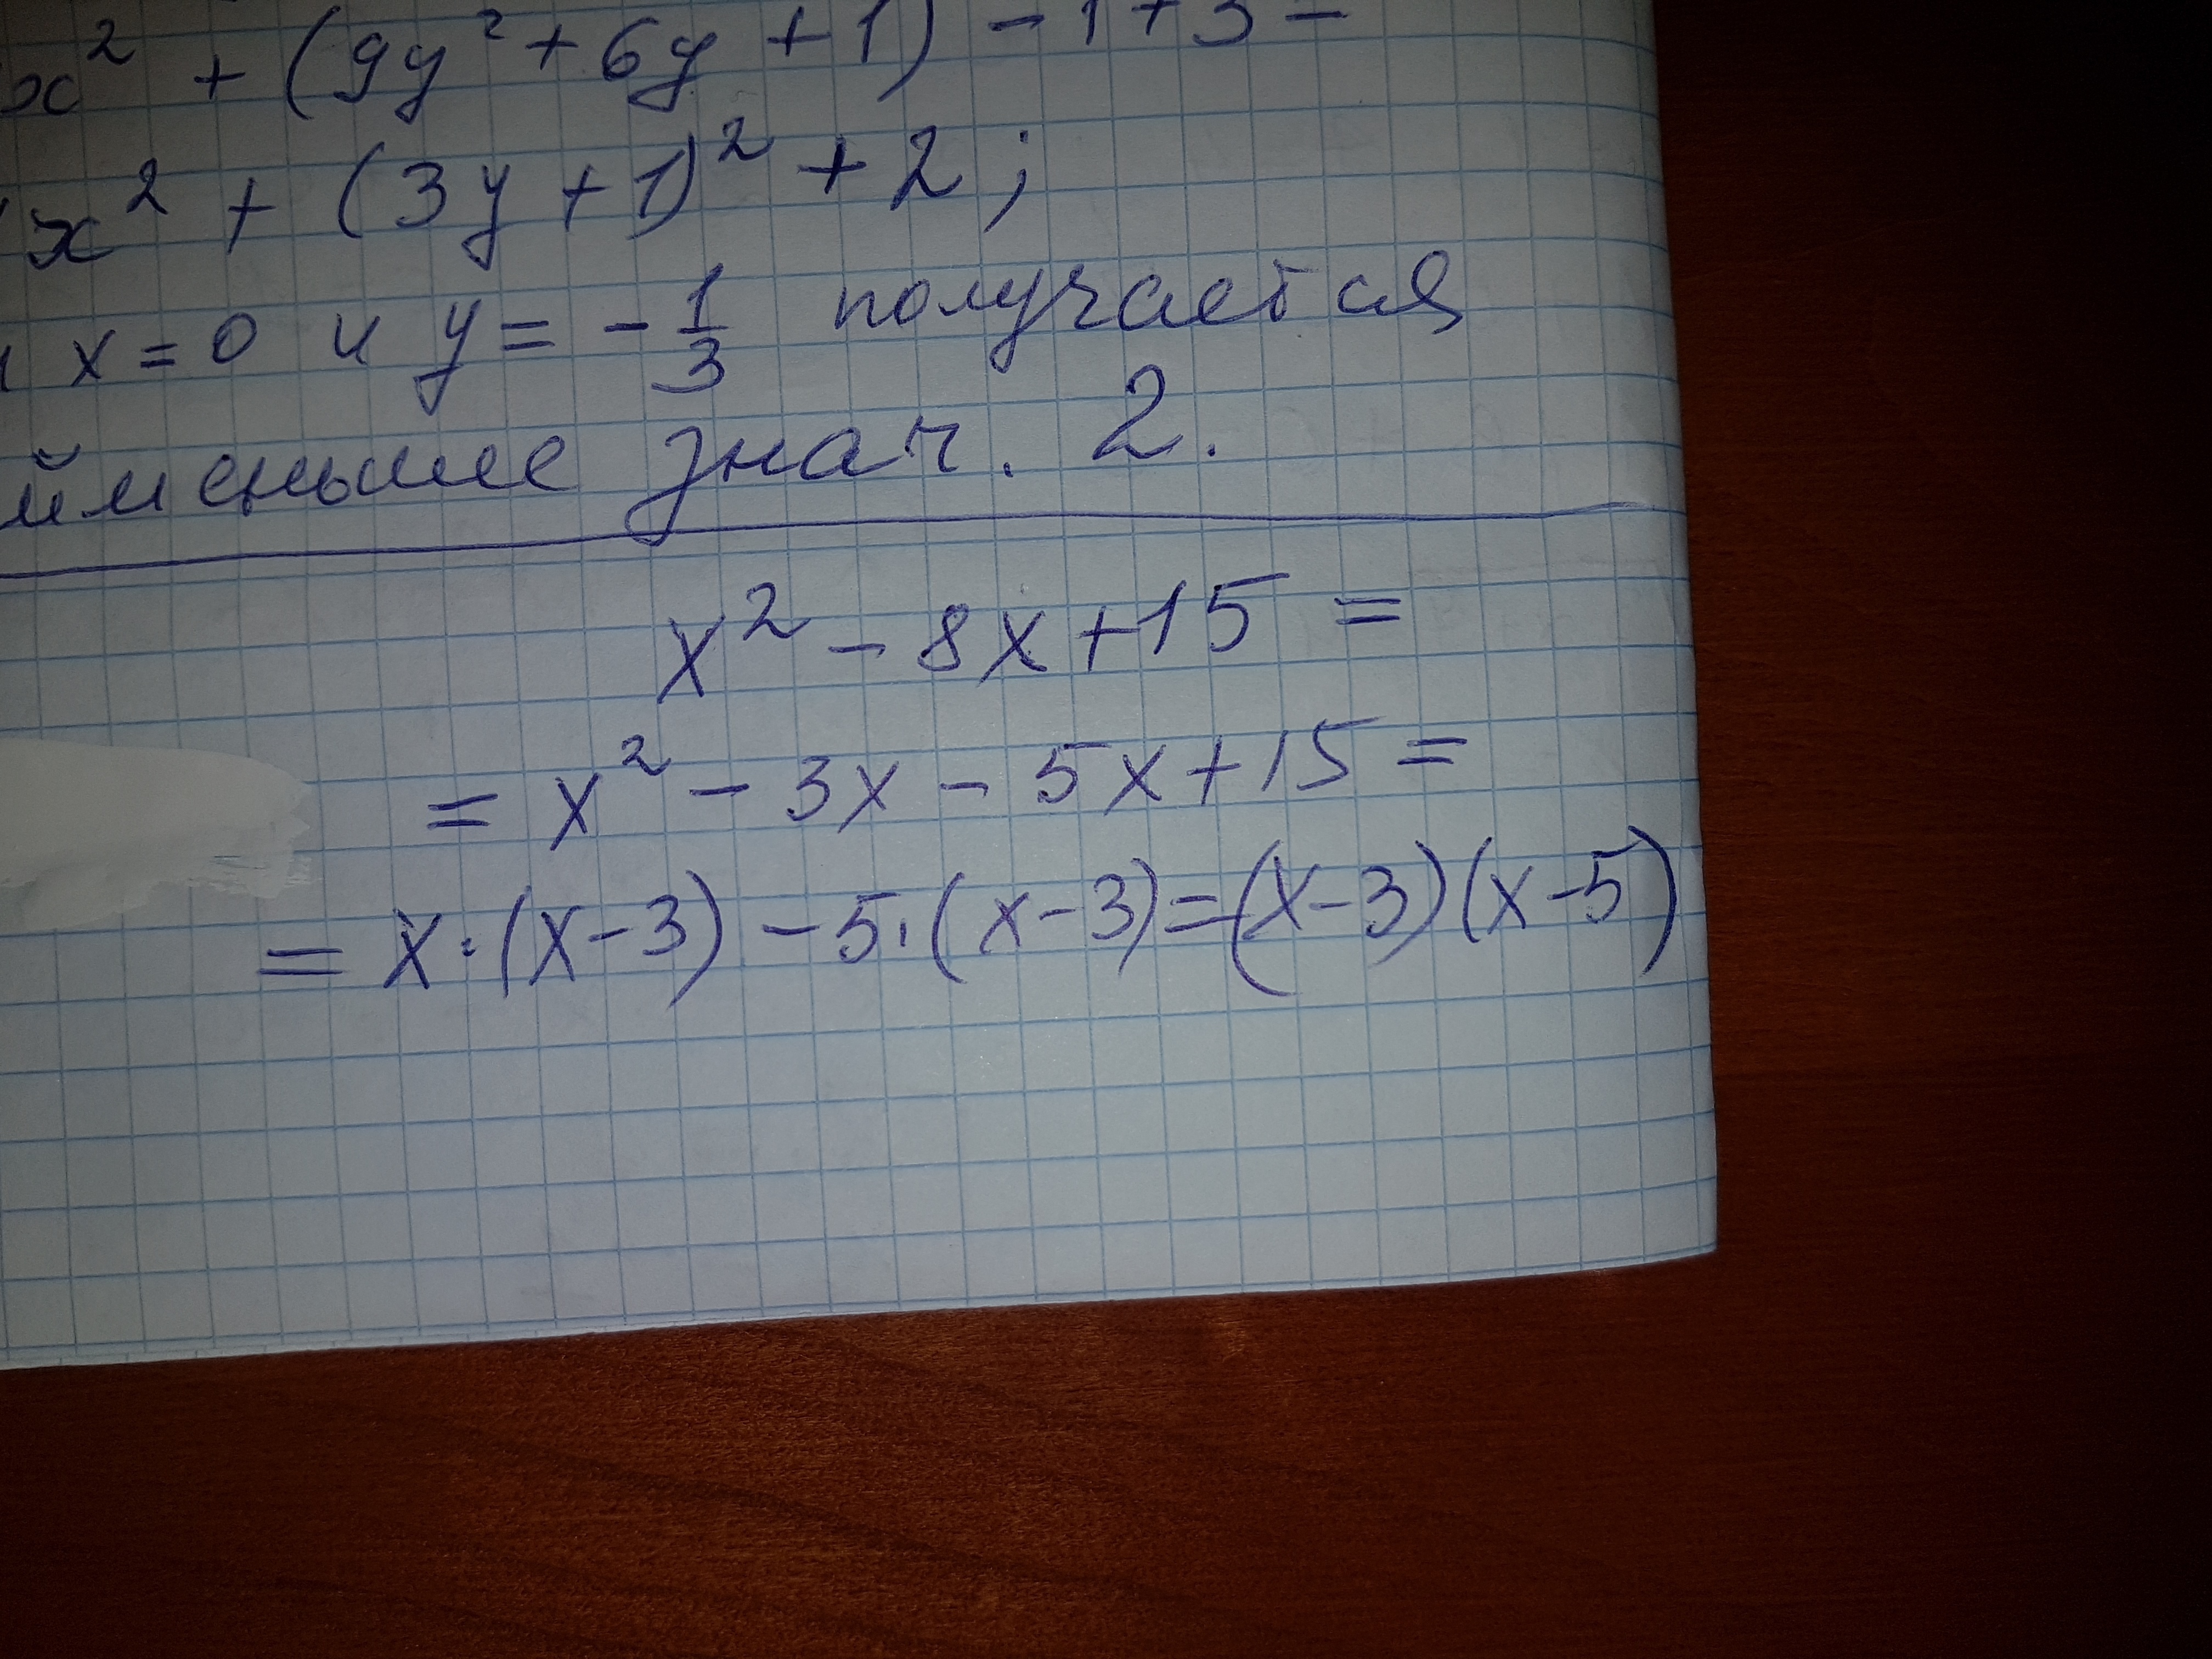 x² + (9y² + 6y + 1) - 1 + 3 =
x² + (3y + 1)² + 2;
x = 0 и y = -1/3 получается
йменьшее знач. 2.
x² - 8x + 15 =
= x² - 3x - 5x + 15 =
= x · (x - 3) - 5 · (x - 3) = (x - 3)(x - 5)